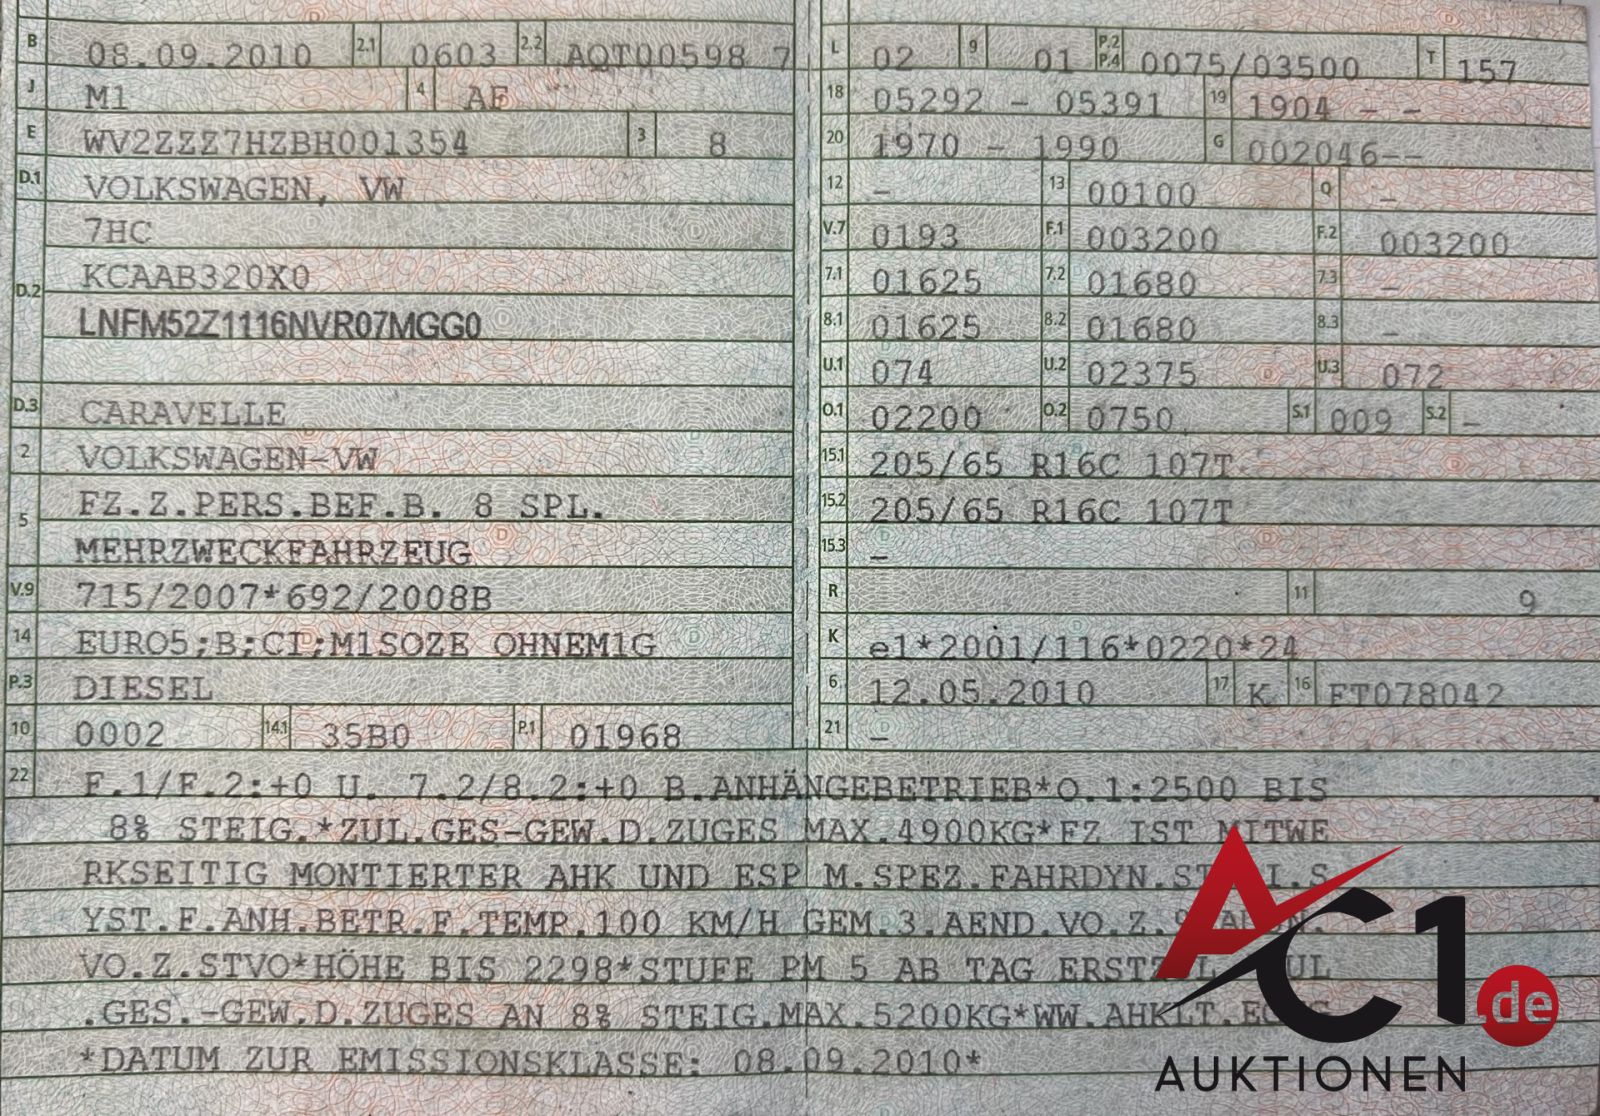 B 08.09.2010 2.1 0603 2.2 AQT00598 7
J M1 4 AF
E WV2ZZZ7HZBH001354 3 8
D.1 VOLKSWAGEN, VW
7HC
D.2 KCAAB320X0
LNFM52Z1116NVR07MGG0
D.3 CARAVELLE
2 VOLKSWAGEN-VW
5 FZ.Z.PERS.BEF.B. 8 SPL.
MEHRZWECKFAHRZEUG
V.9 715/2007*692/2008B
14 EURO5;B;CI;M1SOZE OHNEM1G
P.3 DIESEL
10 0002 14.1 35B0 P.1 01968
L 02 9 01 P.2 P.4 0075/03500 T 157
18 05292 - 05391 19 1904 - -
20 1970 - 1990 G 002046--
12 - 13 00100 Q -
V.7 0193 F.1 003200 F.2 003200
7.1 01625 7.2 01680 7.3 -
8.1 01625 8.2 01680 8.3 -
U.1 074 U.2 02375 U.3 072
O.1 02200 O.2 0750 S.1 009 S.2 -
15.1 205/65 R16C 107T
15.2 205/65 R16C 107T
15.3 -
R 11 9
K e1*2001/116*0220*24
6 12.05.2010 17 K 16 ET078042
21 -
22 F.1/F.2:+0 U. 7.2/8.2:+0 B.ANHÄNGEBETRIEB*O.1:2500 BIS
8% STEIG.*ZUL.GES-GEW.D.ZUGES MAX.4900KG*FZ IST MITWE
RKSEITIG MONTIERTER AHK UND ESP M.SPEZ.FAHRDYN.
YST.F.ANH.BETR.F.TEMP.100 KM/H GEM.3.AEND.VO.Z.
VO.Z.STVO*HÖHE BIS 2298*STUFE PM 5 AB TAG
.GES.-GEW.D.ZUGES AN 8% STEIG.MAX.5200KG*WW.AHKLT.
*DATUM ZUR EMISSIONSKLASSE: 08.09.2010*
AC1.de
AUKTIONEN